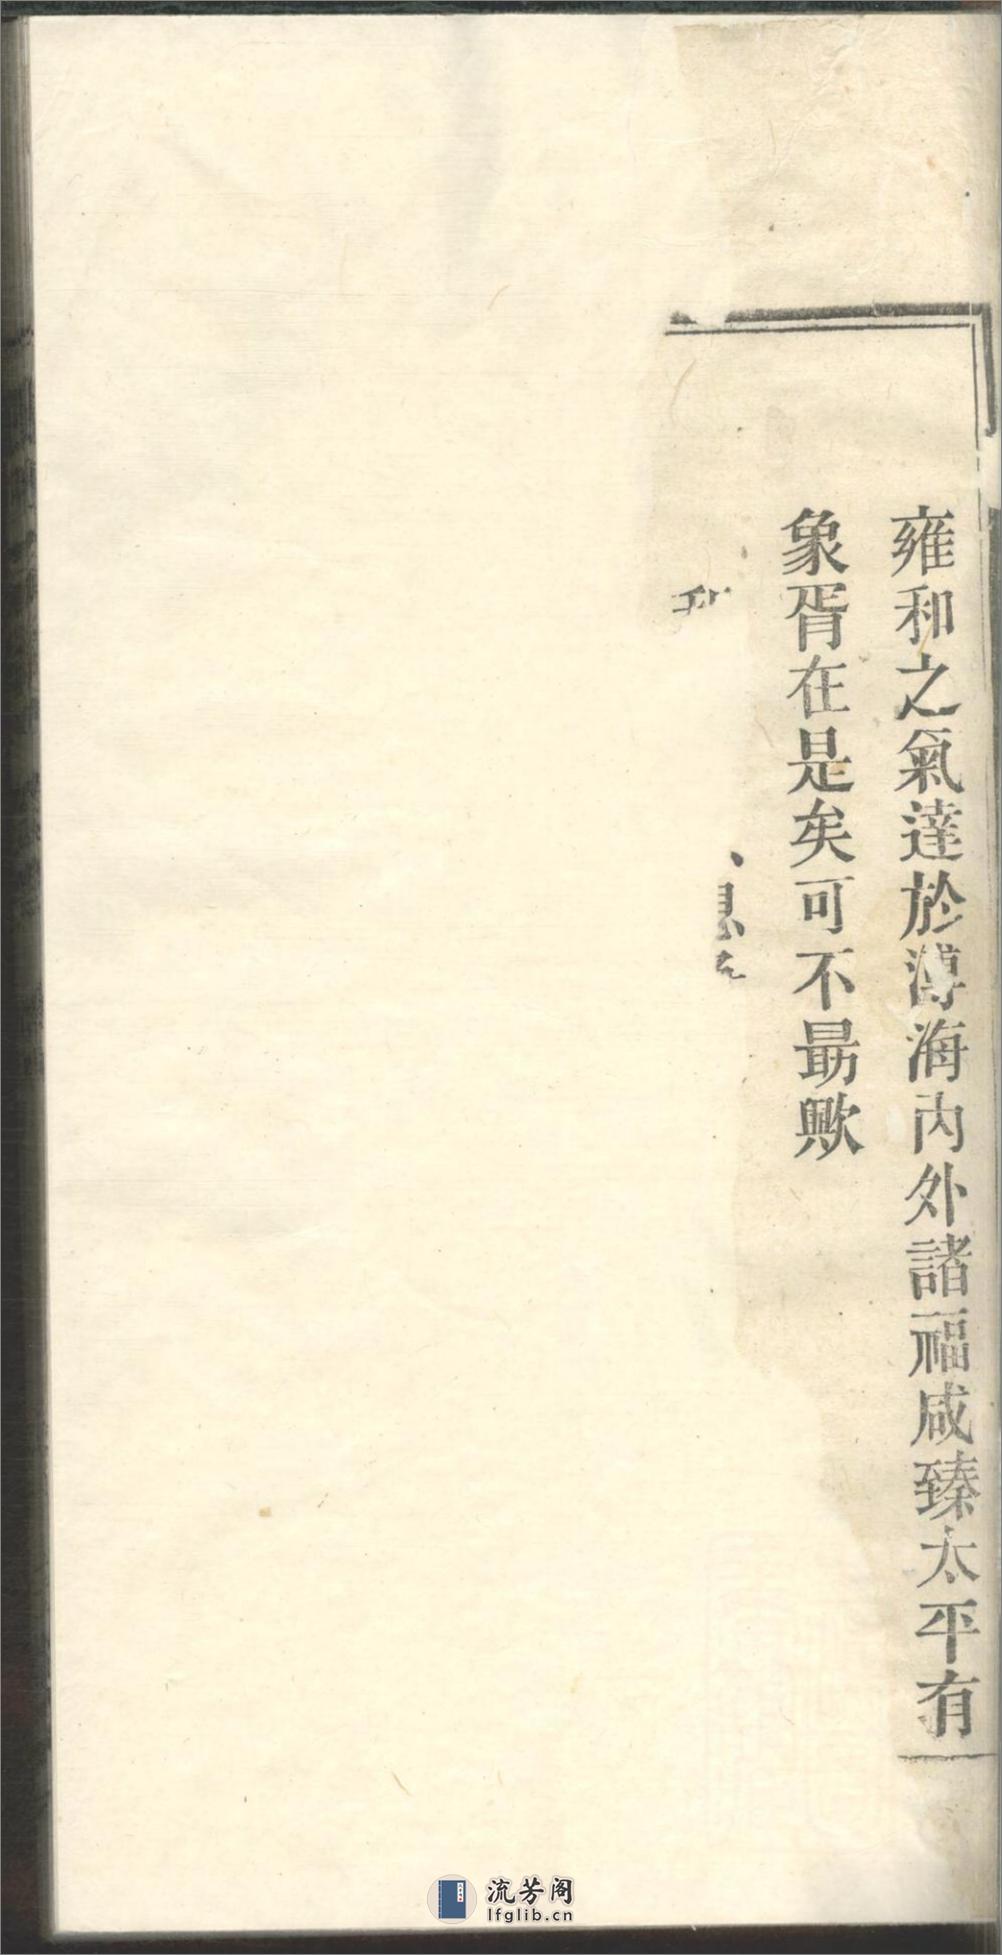 雍和之氣達於溥海內外諸福咸臻太平有
象胥在是矣可不勗歟
流芳阁
lfglib.cn